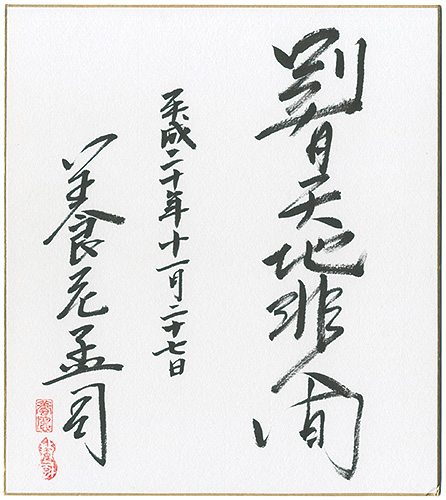 別有天地非人間
平成二十年十一月二十七日
養老孟司